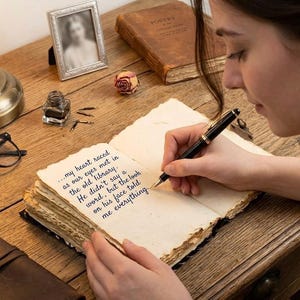 POETRY
...my heart raced
as our eyes met in
the old library.
He didn't say a
word, but the look
on his face told
me everything.